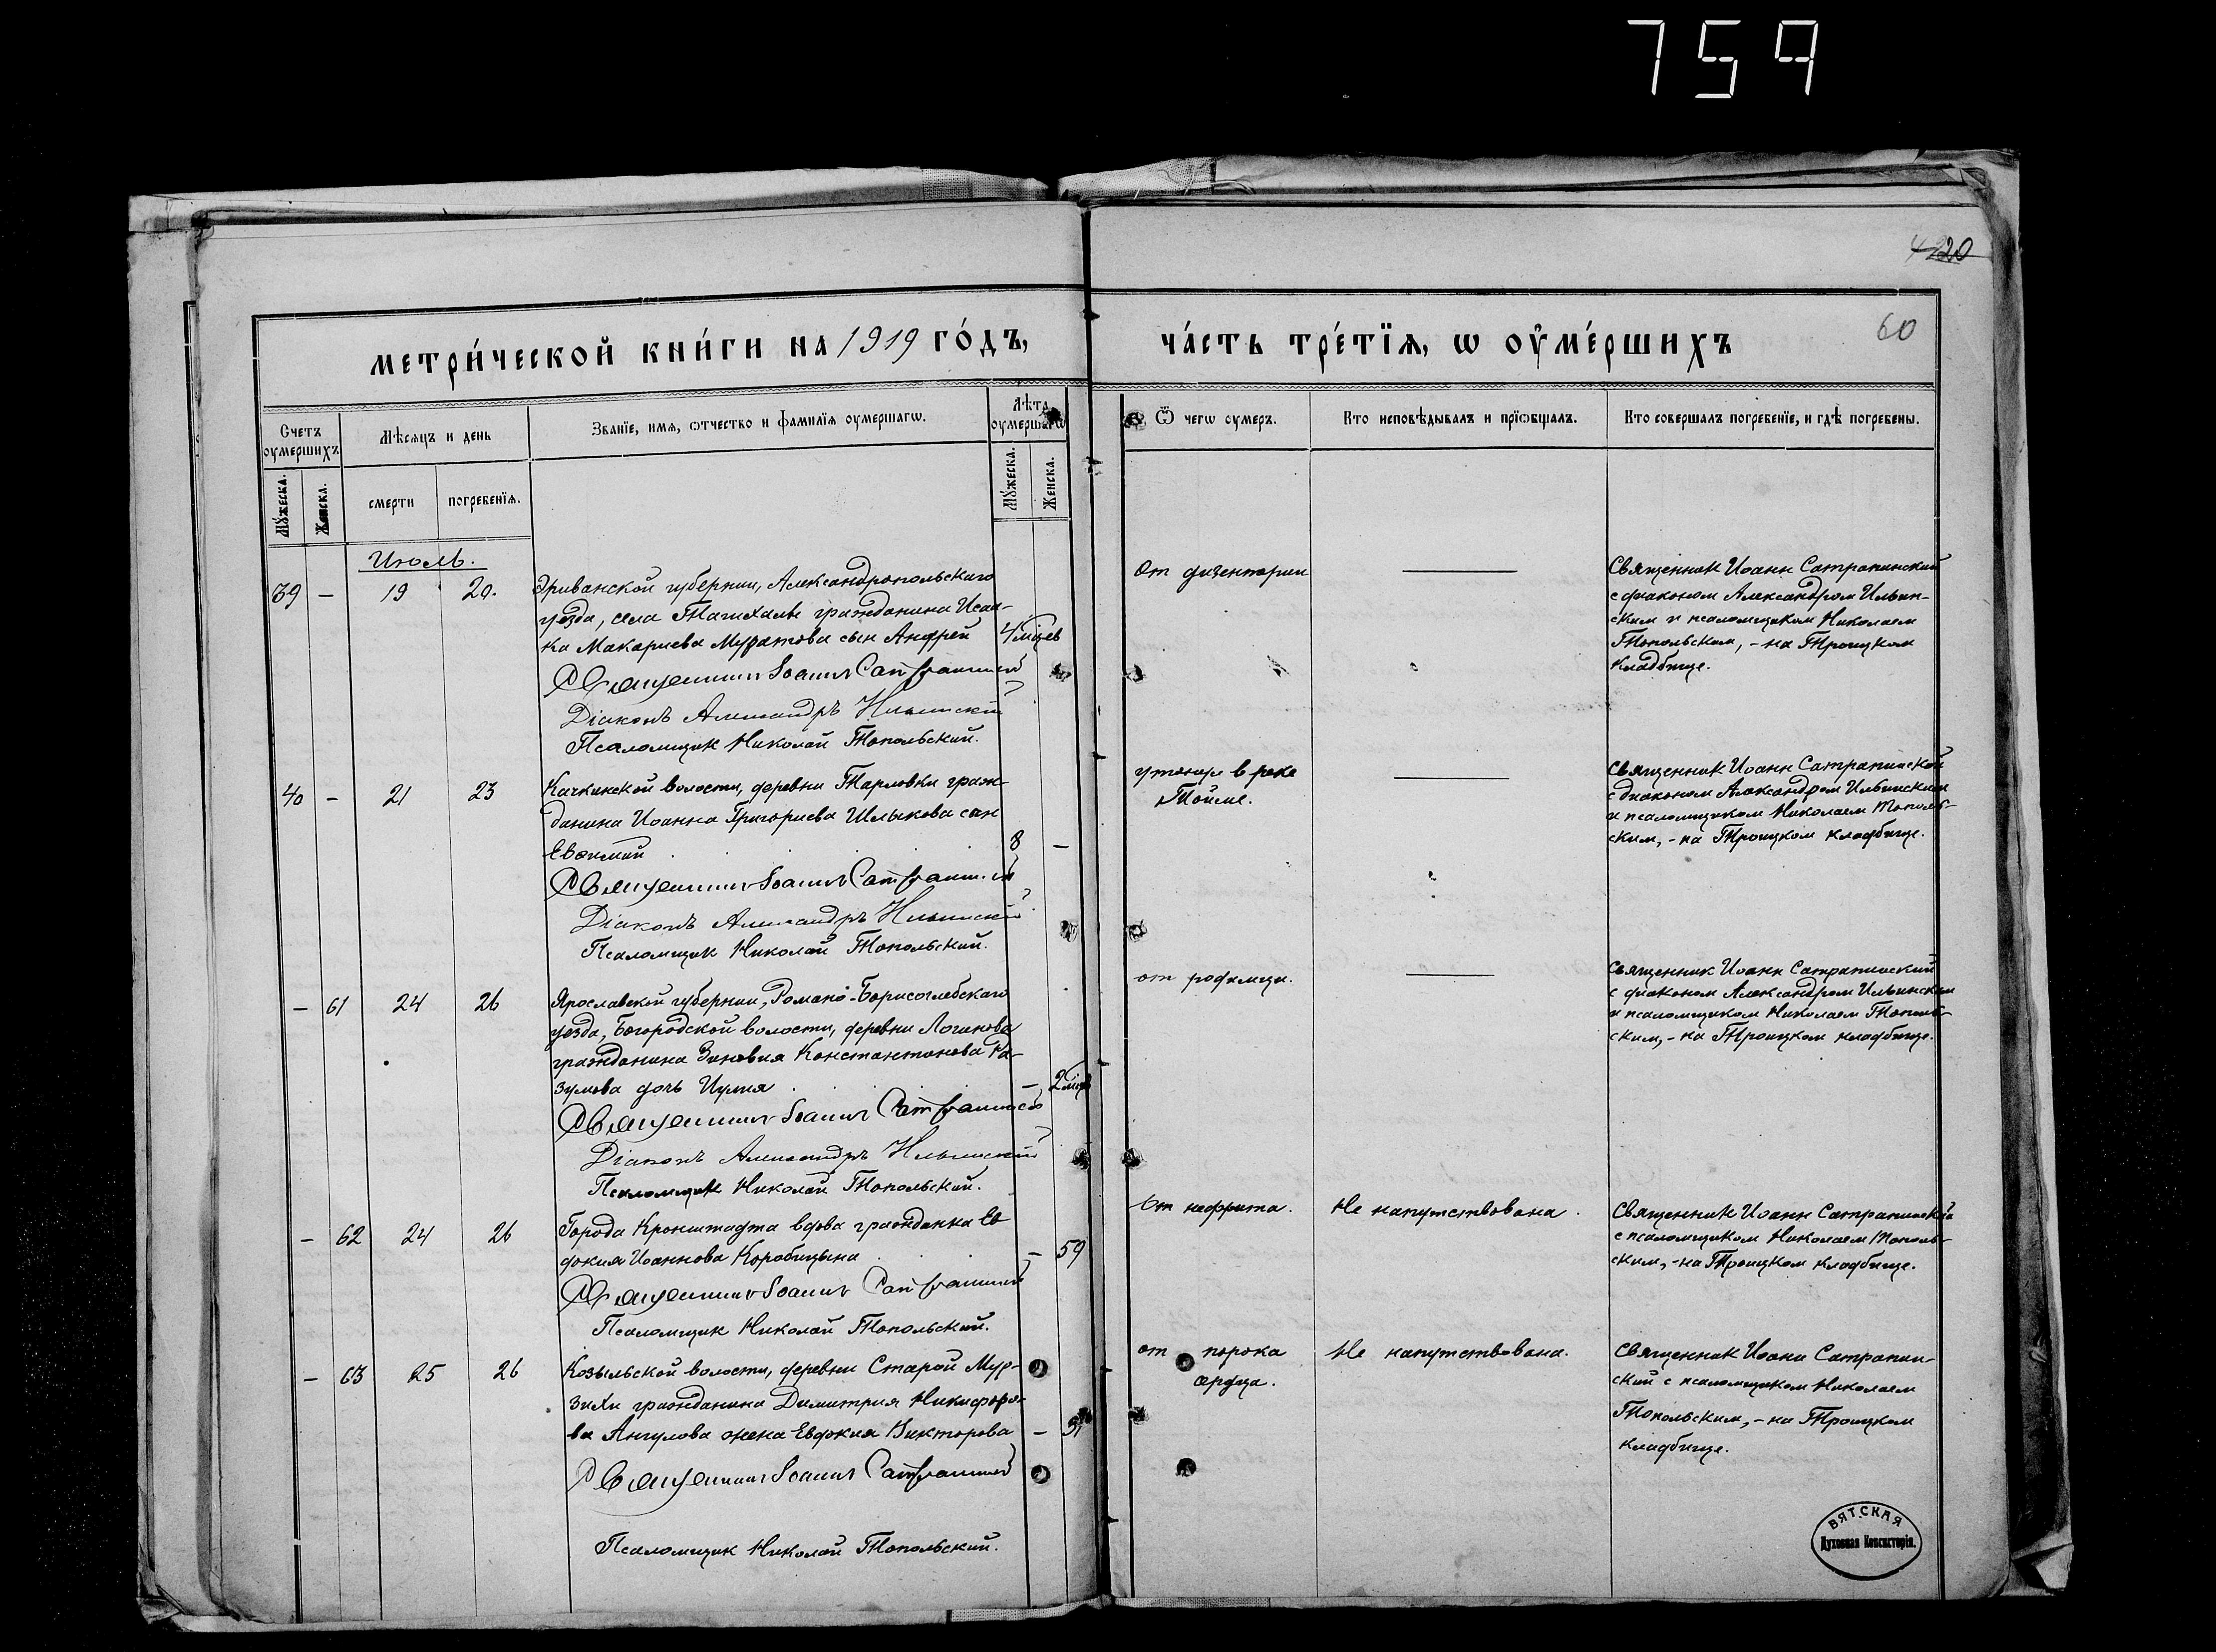 759
420
60
метри́ческой кни́ги на 1919 го́дъ,
ча́сть тре́тїѧ, ѡ оу҆ме́ршихъ
Счетъ оумершихъ
Мѣсѧцъ и день
Званїе, имѧ, ѡтчество и фамилїѧ оумершагѡ.
Лѣта оумершагѡ
Ѿ чегѡ оумеръ.
Кто исповѣдывалъ и прїѡбщалъ.
Кто совершалъ погребенїе, и гдѣ погребены.
Мꙋжеска.
Женска.
смерти
погребенїѧ.
Мꙋжеска.
Женска.
Июль.
39 – 19 20.
Эриванской губернии, Александропольскаго
уезда, села гражданина Исаа-
ка Макариева Муратова сын Андрей 4 м̃цев
Священникъ Іоаннъ Сатрапинскій
Діаконъ Александръ Ильинскій
Псаломщик Николай Топольский.
От дизентерии
Священник Иоанн Сатрапинский
с диаконом Александром Ильин-
ским и псаломщиком Николаем
Топольским, - на Троицком
кладбище.
40 – 21 23
Качкинской волости, деревни Тарловки граж-
данина Иоанна Григориева Шлыкова сын
Евфимий 8 –
Священникъ Іоаннъ Сатрапинскій
Діаконъ Александръ Ильинскій
Псаломщик Николай Топольский.
утонул в реке
Тойме.
Священник Иоанн Сатрапинский
с диаконом Александром Ильинским
и псаломщиком Николаем Тополь-
ским, - на Троицком кладбище.
– 61 24 26
Ярославской губернии, Романо-Борисоглебскаго
уезда, Богородской волости, деревни Логинова
гражданина Зиновия Константинова Ра-
зумова дочь Иулия – 2 м̃ца
Священникъ Іоаннъ Сатрапинскій
Діаконъ Александръ Ильинскій
Псаломщик Николай Топольский.
от родимца.
Священник Иоанн Сатрапинский
с диаконом Александром Ильинским
и псаломщиком Николаем Тополь-
ским, - на Троицком кладбище.
– 62 24 26
Города Кронштадта вдова гражданка Ев-
докия Иоаннова Коробицына – 59
Священникъ Іоаннъ Сатрапинскій
Псаломщик Николай Топольский.
От нефрита.
Не напутствована.
Священник Иоанн Сатрапинский
с псаломщиком Николаем Тополь-
ским, - на Троицком кладбище.
– 63 25 26
Козыльской волости, деревни Старой Мур-
зихи гражданина Димитрия Никифоро-
ва Янгулова жена Евдокия Викторова –
Священникъ Іоаннъ Сатрапинскій
Псаломщик Николай Топольский.
от порока
сердца.
Не напутствована.
Священник Иоанн Сатрапин-
ский с псаломщиком Николаем
Топольским, - на Троицком
кладбище.
ВЯТСКАЯ
Духовная Консисторія.